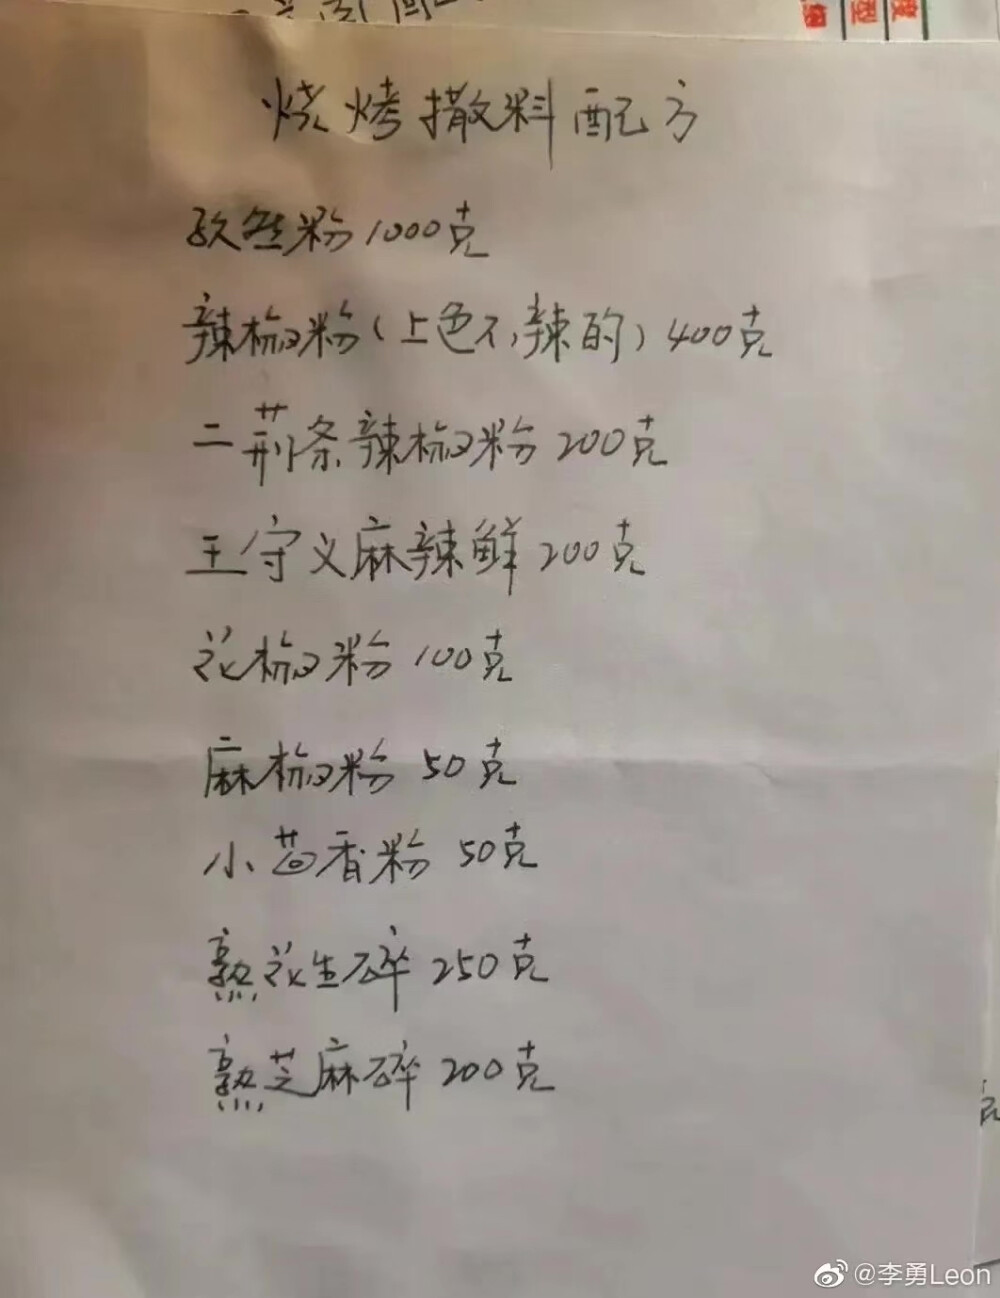 烧烤撒料配方
孜然粉1000克
辣椒粉(上色不辣的)400克
二荆条辣椒粉200克
王守义麻辣鲜200克
花椒粉100克
麻椒粉50克
小茴香粉50克
熟花生碎250克
熟芝麻碎200克
@李勇Leon